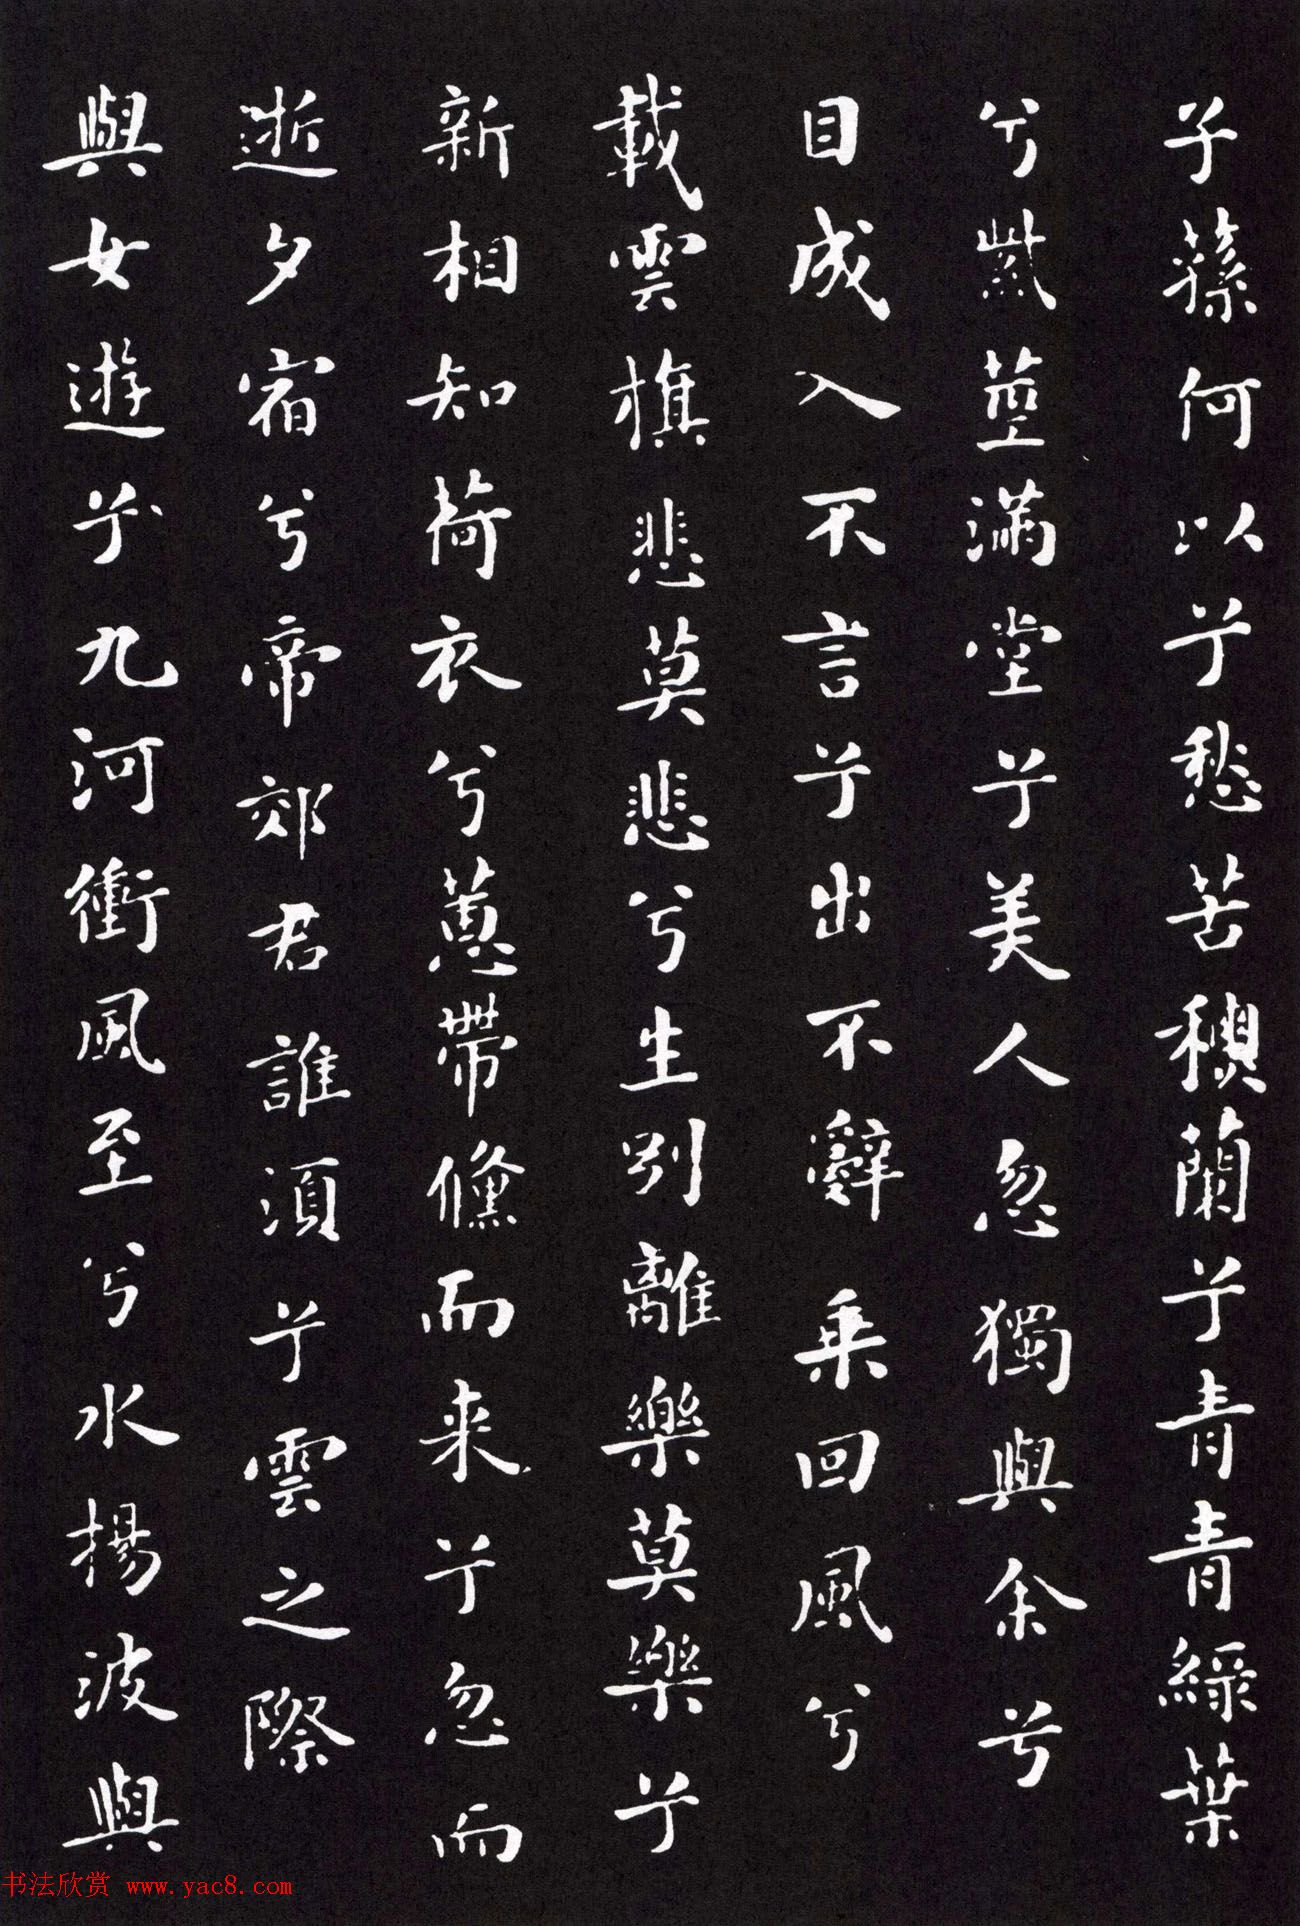 子蓀何以兮愁苦穐蘭兮青青綠葉
兮紫莖滿堂兮美人忽獨與余兮
目成入不言兮出不辭乘回風兮
載雲旗悲莫悲兮生別離樂莫樂兮
新相知荷衣兮蕙帶儵而来兮忽而
逝夕宿兮帝郊君誰須兮雲之際
與女遊兮九河衝風至兮水揚波與
书法欣赏 www.yac8.com